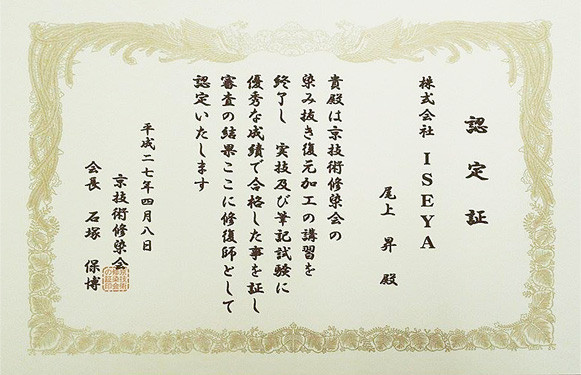 認定証
株式会社 ISEYA
尾上 昇 殿
貴殿は京技術修染会の
染み抜き復元加工の講習を
終了し 実技及び筆記試験に
優秀な成績で合格した事を証し
審査の結果ここに修復師として
認定いたします
平成二七年四月八日
京技術修染会
会長 石塚 保博